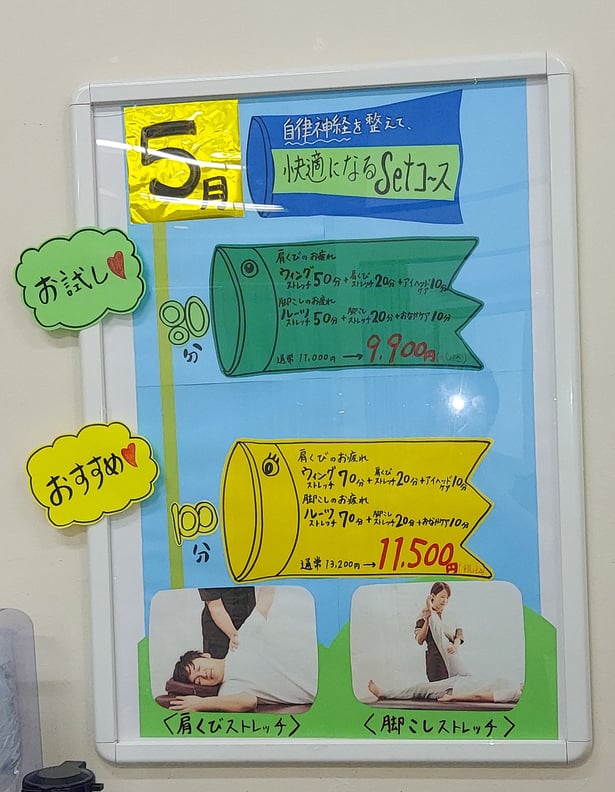 5月
自律神経を整えて、
快適になるSetコース
お試し
80分
肩くびのお疲れ
ウィングストレッチ50分+肩くびストレッチ20分+アイヘッドケア10分
脚こしのお疲れ
ルーツストレッチ50分+脚こしストレッチ20分+おなかケア10分
通常11,000円→9,900円
おすすめ
100分
肩くびのお疲れ
ウィングストレッチ70分+肩くびストレッチ20分+アイヘッドケア10分
脚こしのお疲れ
ルーツストレッチ70分+脚こしストレッチ20分+おなかケア10分
通常13,200円→11,500円
〈肩くびストレッチ〉
〈脚こしストレッチ〉